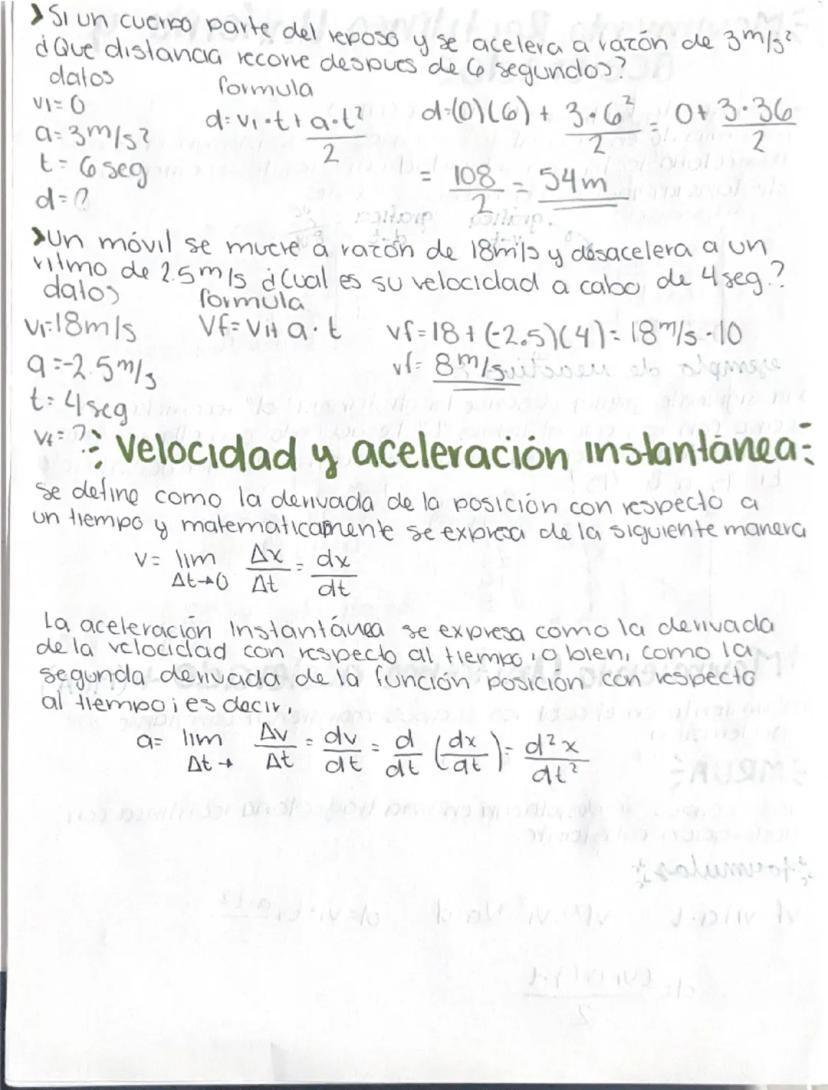 > Si un cuerpo parte del reposo y se acelera a razón de 3m/s²
¿Que distancia recorre despues de 6 segundos?
datos formula
vi= 0 d= vi·t + a·t²/2 d=(0)(6) + 3·6²/2 = 0+ 3·36/2
a= 3m/s²
t= 6 seg = 108/2 = 54m
d= ?
> Un móvil se mueve a razón de 18m/s y desacelera a un
ritmo de 2.5m/s ¿Cual es su velocidad a cabo de 4seg.?
datos formula
vi=18m/s Vf= vi+ a·t vf= 18 + (-2.5)(4)= 18m/s -10
a=-2.5m/s vf= 8m/s
t= 4 seg
vf=?
Velocidad y aceleración instantánea:
se define como la derivada de la posición con respecto a
un tiempo y matematicamente se expresa de la siguiente manera
v= lim Δt→0 Δx/Δt = dx/dt
La aceleración Instantánea se expresa como la derivada
de la velocidad con respecto al tiempo, o bien, como la
segunda derivada de la función posición con respecto
al tiempo; es decir,
a= lim Δt→ Δv/Δt = dv/dt = d/dt (dx/dt) = d²x/dt²